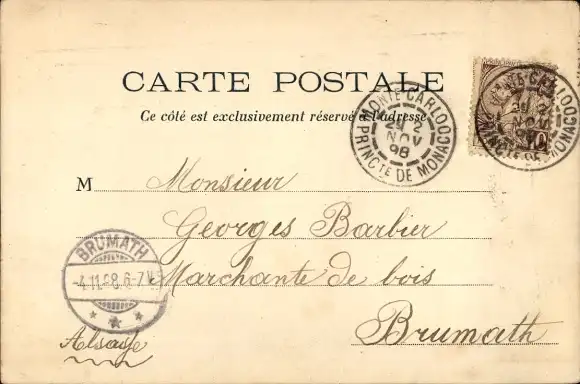 CARTE POSTALE
Ce côté est exclusivement réservé à l'adresse
MONTE CARLO
2 NOV 98
PRINCTE DE MONACO
MONTE-CARLO
PRINCTE DE MONACO
10
M Monsieur
Georges Barbier
Marchante de bois
Brumath
Alsace
BRUMATH
-4.11.98.6-7